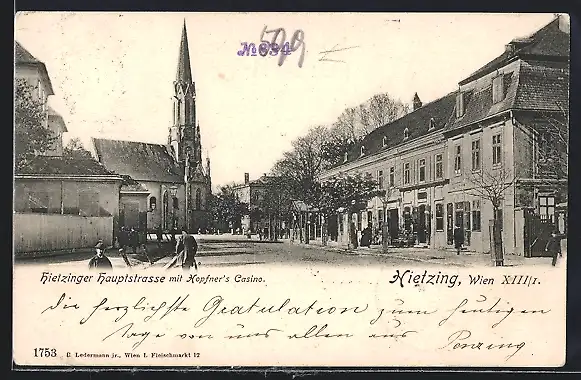 № 894
599
Hietzinger Hauptstrasse mit Hopfner's Casino.
Hietzing, Wien XIII/1.
die herzlichste Gratulation zum heutigen
Tage von uns allen aus Penzing
1753 C. Ledermann jr., Wien I. Fleischmarkt 12